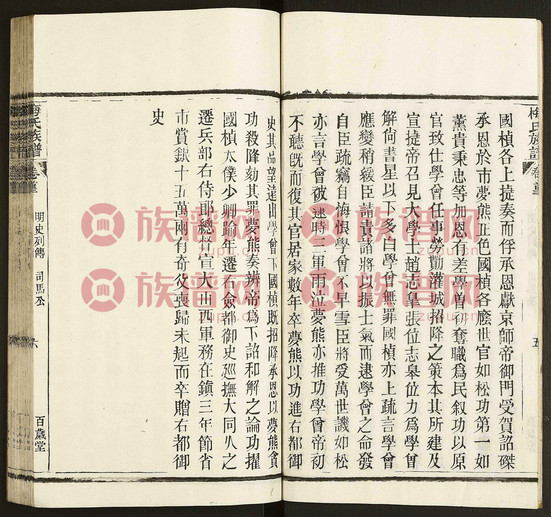 國楨各上捷奏而俘承恩獻京師帝御門受賀詔磔
承恩於市夢熊正色國楨各廕世官如松功第一如
薰貴秉忠等加恩有差學曾初奪職為民敘功以原
官致仕學曾任事勞勩灌城招降之策本其所建及
宣捷帝召見大學士趙志臯張位志臯位力為學曾
解尙書星以下多白學曾無罪國楨亦上疏言學曾
應變稍緩臣請責諸將以振士氣而逮學曾之命發
自臣疏竊自悔恨學曾不早雪臣將受萬世譏如松
亦言學曾被逮時三軍雨泣夢熊亦推功學曾帝初
不聽旣而復其官居家數年卒夢熊以功進右都御
史其品望遠出學曾下國楨既招降承恩以夢熊貪
功殺降劾其罪夢熊奏辨帝為下詔和解之論功擢
國楨太僕少卿踰年遷右僉都御史巡撫大同久之
遷兵部右侍郎總督宣大山西軍務在鎭三年節省
市賞銀十五萬兩有奇父喪歸未起而卒贈右都御
史
梅氏族譜
卷壹
五
梅氏族譜
卷壹
明史列傳
司馬丞
六
百歲堂
族譜网
zupu.cn
族譜网
zupu.cn
族譜网
zupu.cn
族譜网
zupu.cn